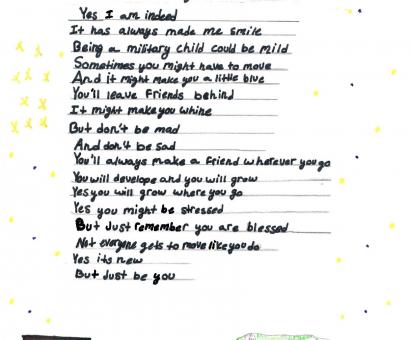 Yes I am indeed
It has always made me smile
Being a military child could be mild
Sometimes you might have to move
And it might make you a little blue
You'll leave friends behind
It might make you whine
But don't be mad
And don't be sad
You'll always make a friend wherever you go
You will develope and you will grow
Yes you will grow where you go
Yes you might be stressed
But Just remember you are blessed
Not everyone gets to move like you do
Yes its new
But Just be you